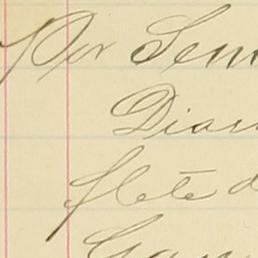 Por Sem
Dian
flete d
Gan